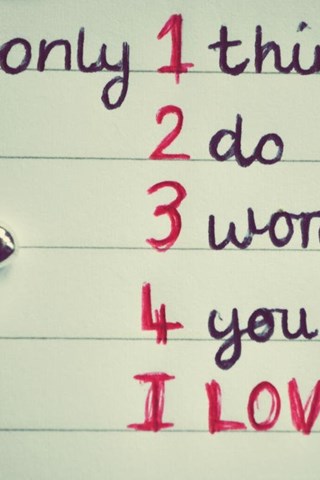 only 1 thi
2 do
3 wor
4 you
I LOV